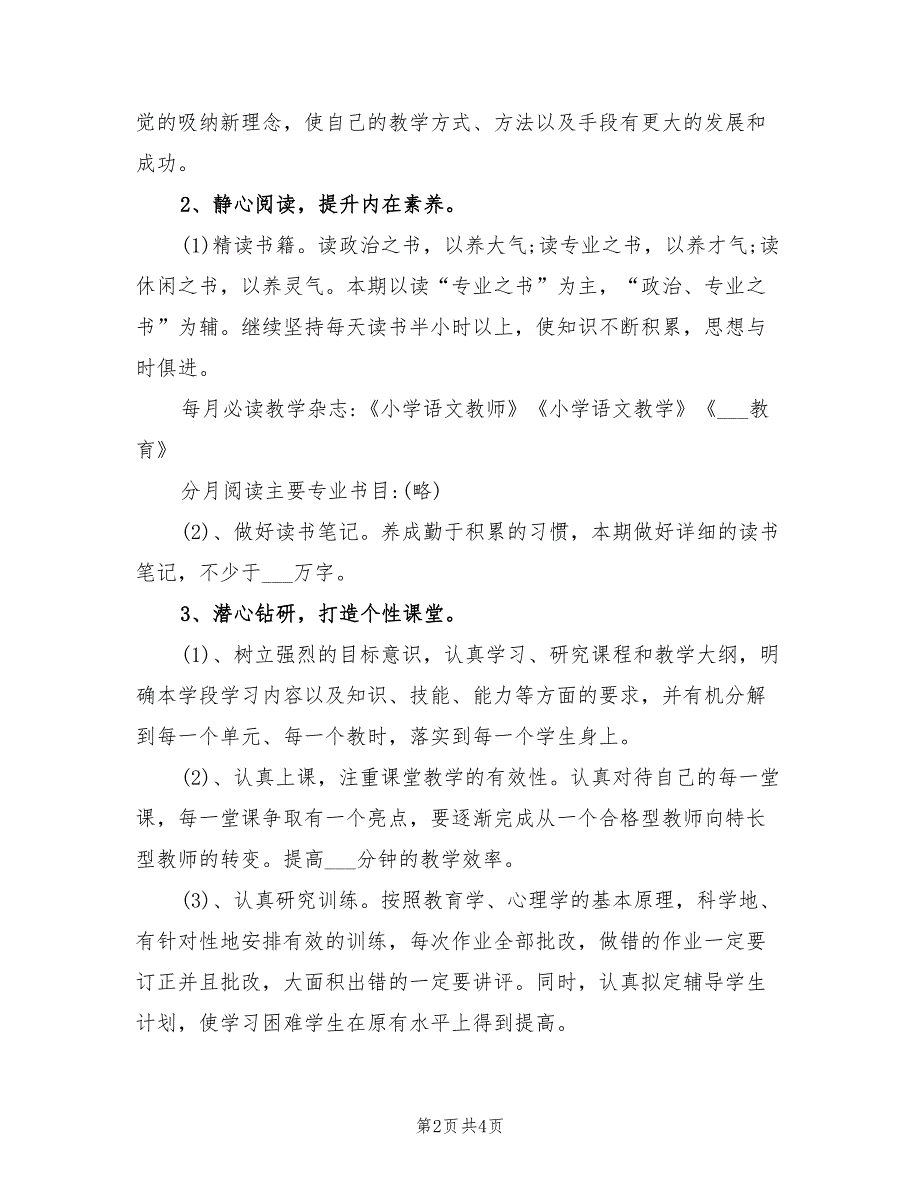 觉的吸纳新理念，使自己的教学方式、方法以及手段有更大的发展和
成功。
2、静心阅读，提升内在素养。
(1)精读书籍。读政治之书，以养大气;读专业之书，以养才气;读
休闲之书，以养灵气。本期以读“专业之书”为主，“政治、专业之
书”为辅。继续坚持每天读书半小时以上，使知识不断积累，思想与
时俱进。
每月必读教学杂志:《小学语文教师》《小学语文教学》《___教
育》
分月阅读主要专业书目:(略)
(2)、做好读书笔记。养成勤于积累的习惯，本期做好详细的读书
笔记，不少于___万字。
3、潜心钻研，打造个性课堂。
(1)、树立强烈的目标意识，认真学习、研究课程和教学大纲，明
确本学段学习内容以及知识、技能、能力等方面的要求，并有机分解
到每一个单元、每一个教时，落实到每一个学生身上。
(2)、认真上课，注重课堂教学的有效性。认真对待自己的每一堂
课，每一堂课争取有一个亮点，要逐渐完成从一个合格型教师向特长
型教师的转变。提高___分钟的教学效率。
(3)、认真研究训练。按照教育学、心理学的基本原理，科学地、
有针对性地安排有效的训练，每次作业全部批改，做错的作业一定要
订正并且批改，大面积出错的一定要讲评。同时，认真拟定辅导学生
计划，使学习困难学生在原有水平上得到提高。
第2页共4页